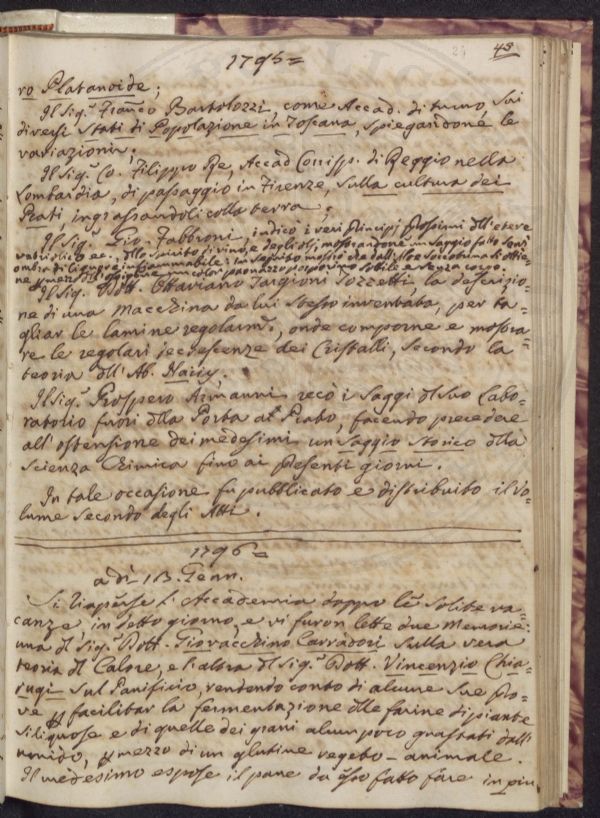 43
1795=
ro Platanoide;
Il Sig.r Franco Bartolozzi, come Accad. di turno, sui
diversi Stati di Popolazione in Toscana, spiegandone le
variazioni;
Il Sig. Co. Filippo Re, Accad. Corrisp. di Reggio nella
Lombardia, di passaggio in Firenze, sulla cultura dei
Prati, ingrassandoli colla terra;
Il Sig.r Gio. Fabbroni, indicò i veri principj prossimi dll'etere
vetriolico ec. dllo spirito di vino, e degli olj, mostrandone un saggio fatto senz'
ombra di liquore infiammabile: In seguito mostrò che dall'Aloe Soccotrina si ottie=
ne p mezzo dll' ossigene un color paonazzo porporino sobile e senza corpo.
Il Sig.r Dott. Ottaviano Targioni Tozzetti, la descrizio=
ne di una Macchina da lui stesso inventata, per ta=
gliar le lamine regolarm.e, onde comporne e mostra=
re le regolari decrescenze dei Cristalli, secondo la
teoria dll' Ab. Haüy.
Il Sig.r Prospero Arimanni recò i saggi dl suo Labo=
ratorio fuori dlla Porta al Prato, facendo precedere
all'ostensione dei medesimi un Saggio Storico dlla
Scienza Chimica fino ai presenti giorni.
In tale occasione fu pubblicato e distribuito il Vo=
lume secondo degli Atti.
1796=
adì 13. Genn.
Si riaperse l'Accademia doppo le solite va=
canze in detto giorno, e vi furon lette due Memorie:
una dl Sig.r Dott. Giovacchino Carradori sulla vera
teoria dl Calore, e l'altra dl Sig.r Dott. Vincenzio Chia=
rugi sul Panificio, rendendo conto di alcune sue pro=
ve p facilitar la fermentazione dlle farine di piante
siliquose e di quelle dei grani alcun poco guastati dall'
umido, p mezzo di un glutine vegeto-animale.
Il medesimo espose il pane da esso fatto fare in piu